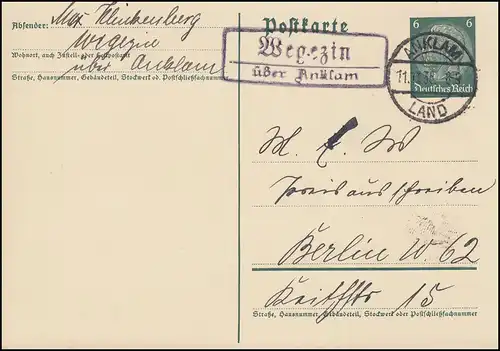 Absender: Max Klinkenberg
Wegezin
Wohnort, auch Zustell- oder Leitpostamt
über Anklam
Straße, Hausnummer, Gebäudeteil, Stockwerk od. Postschließfachnummer
Postkarte
Wegezin
über Anklam
6 6
Deutsches Reich
ANKLAM
LAND
Preisausschreiben
Berlin W. 62
15
Straße, Hausnummer, Gebäudeteil, Stockwerk oder Postschließfachnummer